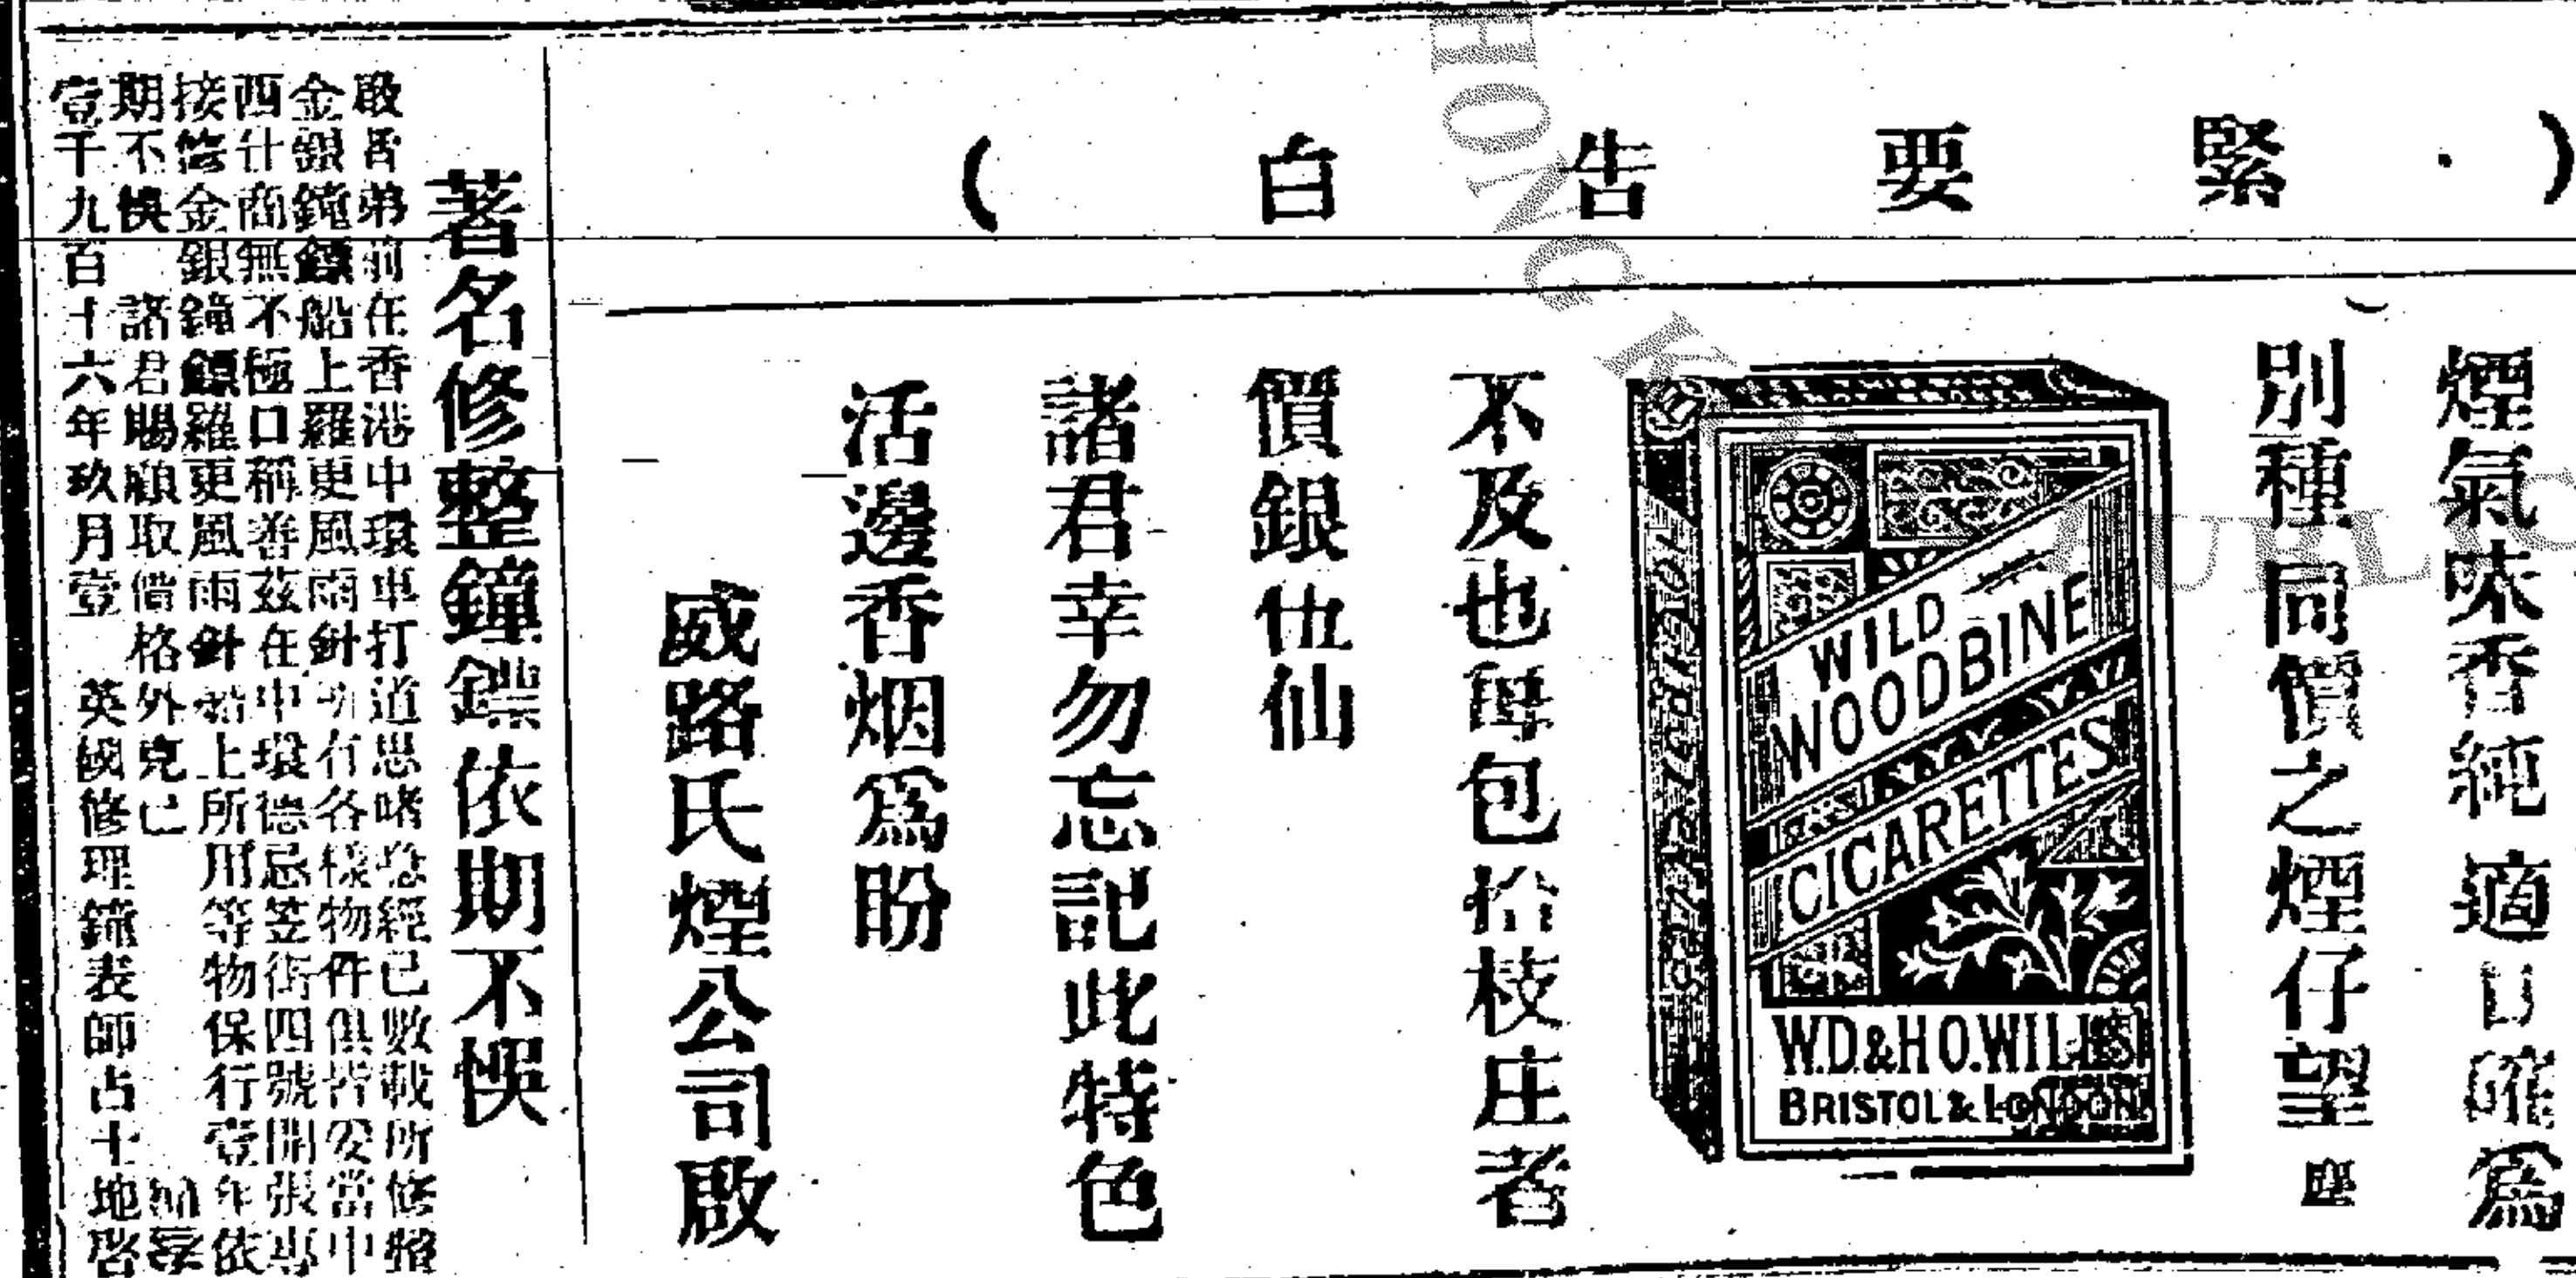 緊要告白
煙氣味香純適口確為
別種同價之煙仔望塵
WILD
WOODBINE
CIGARETTES
W.D.&H.O.WILLS
BRISTOL & LONDON
不及也每包拾枝庄者
價銀伍仙
諸君幸勿忘記此特色
活邊香烟為盼
威路氏煙公司啟
著名修整鐘鏢依期不悞
敬啓者弟前在香港中環車打道思啫 經已數載所修整
金銀鐘鏢船上羅更風雨針 有各樣物件俱皆妥當中
西什商無不極口稱善茲在中環德忌笠街四號開張專
接修金銀鐘鏢羅更風雨針船上所用等物保行壹年依
期不悞 諸君賜顧取價格外克己
壹千九百十六年玖月壹 英國修理鐘表師占士地啓
HONG K
PUBLIC